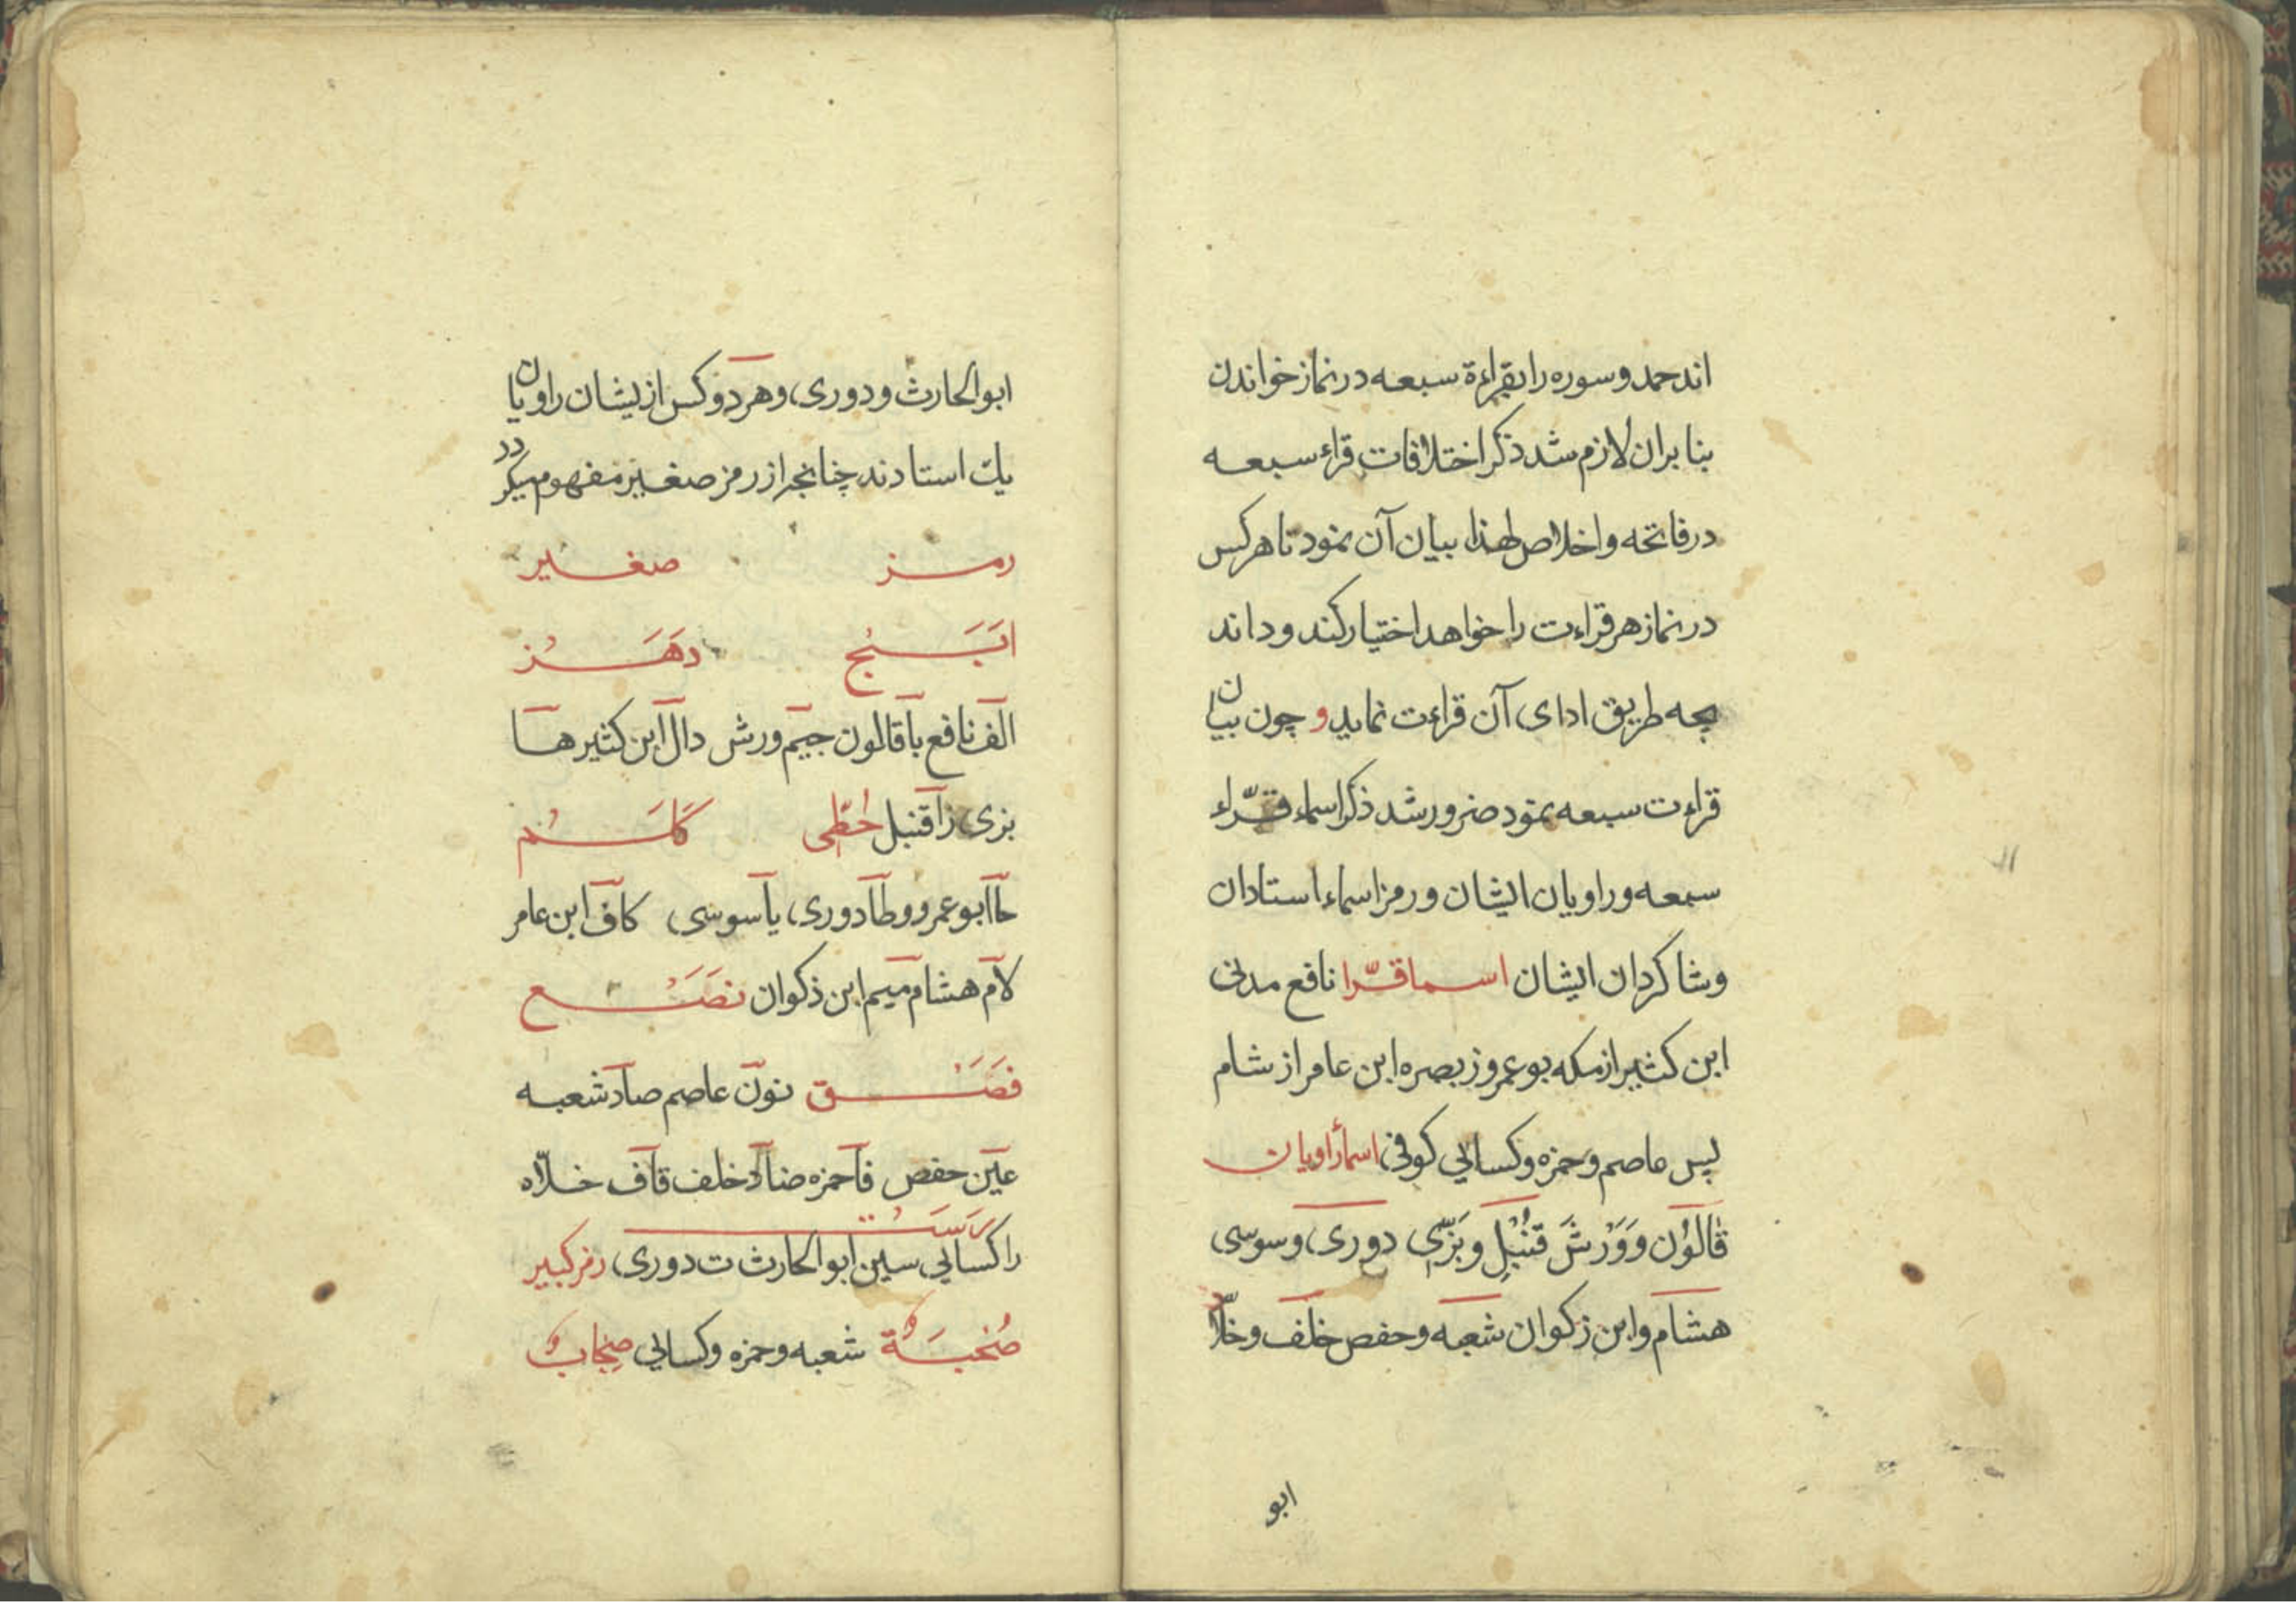 اند حمد و سوره را بقراءة سبعه در نماز خواندن
بنا بران لازم شد ذکر اختلافات قراء سبعه
در فاتحه و اخلاص لهذا بیان آن نمود تا هر کس
در نماز هر قراءت را خواهد اختیار کند و داند
بچه طریق ادای آن قراءت نماید و چون بیان
قراءت سبعه نمود ضرور شد ذکر اسماء قرّاء
سبعه و راویان ایشان و رمز اسماء استادان
و شاکردان ایشان اسما قرّا نافع مدنی
ابن کثیر از مکه بو عمرو ز بصره ابن عامر از شام
پس عاصم و حمزه و کسائی کوفی اسمأ راویان
قَالُوْن وَ وَرْش قُنْبُل و بَزّی دوری و سوسی
هشام و ابن زکوان شعبه و حفص خلف و خلّاد
ابو
ابو الحارث و دوری و هر دو کس از ایشان راویان
یك استادند چنانچه از رمز صغیر مفهوم میکردد
رمز صغیر
ابَجْ دَهَزْ
الف نافع با قالون جیم ورش دال ابن کثیر ها
بزی زا قنبل حُطّی کَلَمْ
حا ابو عمرو و طا دوری یا سوسی کاف ابن عامر
لام هشام میم ابن ذکوان نصَعْ
فضَقْ نون عاصم صاد شعبه
عین حفص فا حمزه ضاد خلف قاف خلّاد
رَسَتْ
را کسائی سین ابو الحارث ت دوری رمز کبیر
صُحْبَة شعبه و حمزه و کسائی صِحَابٌ